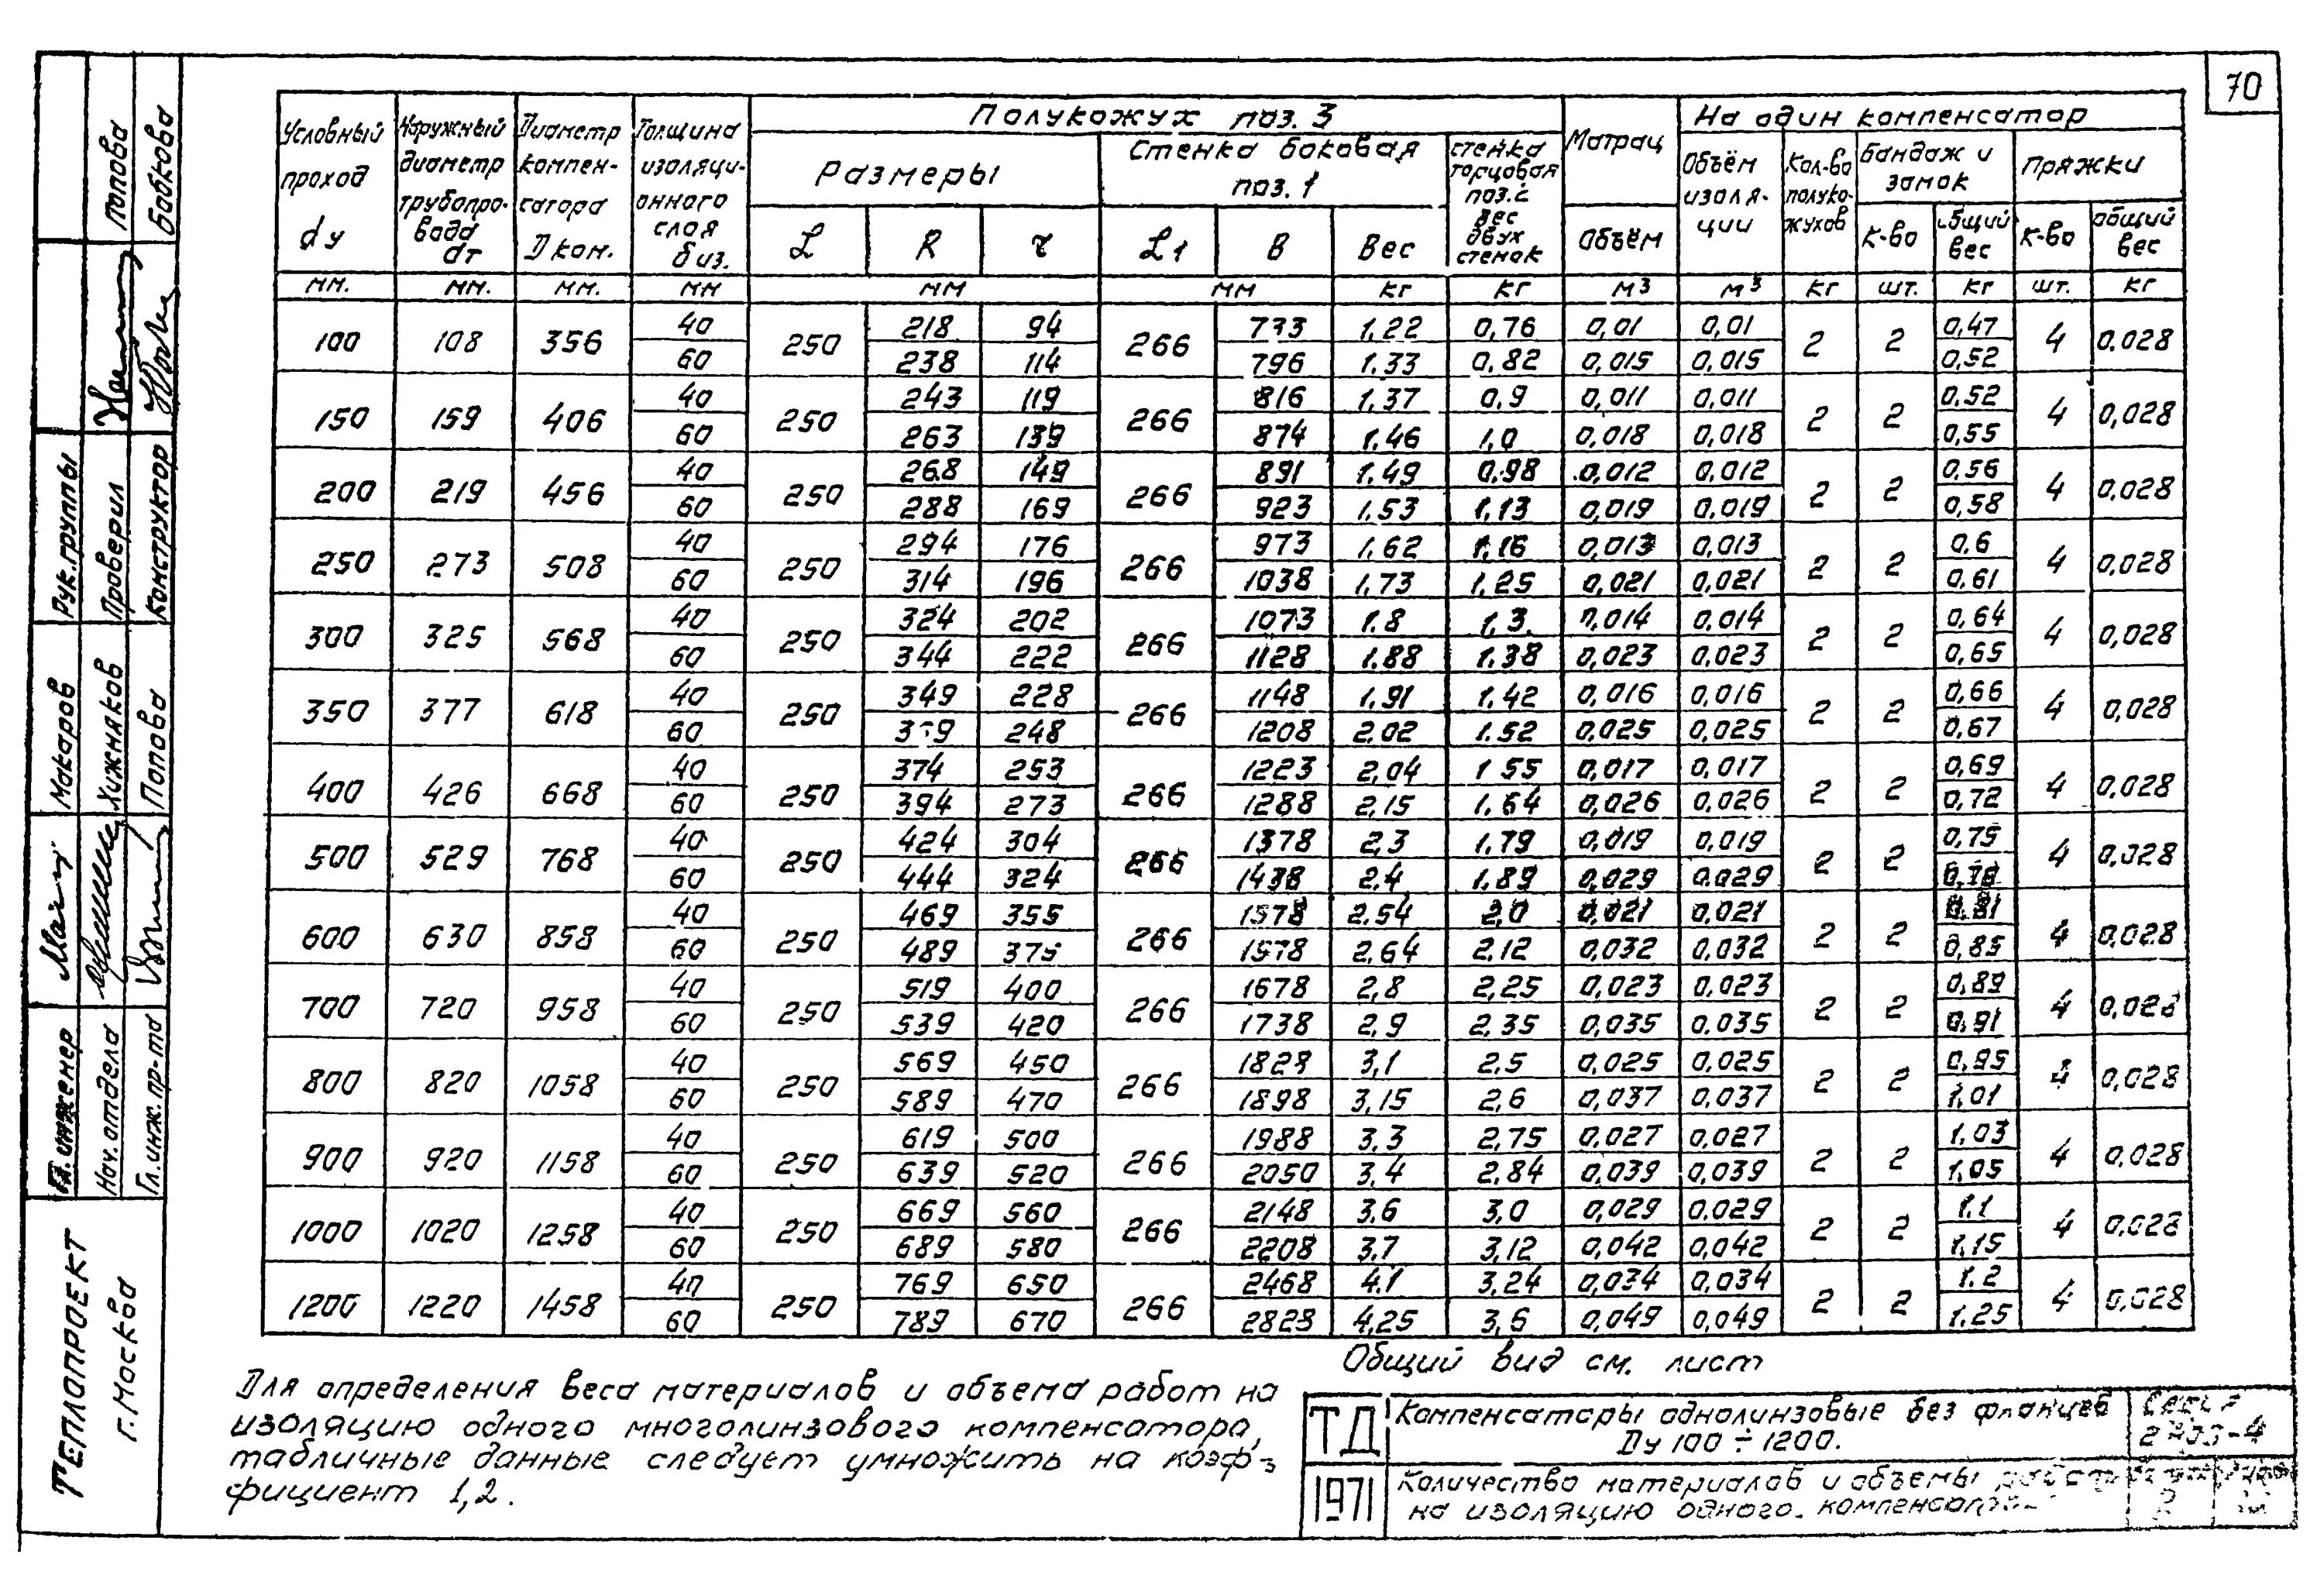 70
Условный проход dу
Наружный диаметр трубопровода dт
Диаметр компенсатора D ком.
Толщина изоляционного слоя б из.
Полукожух поз. 3
Размеры
L R r
Стенка боковая поз. 1
L1 В Вес
стенка торцовая поз. 2 вес двух стенок
Матрац
Объём
На один компенсатор
Объём изоляции
Кол-во полукожухов
Бандаж и замок
к-во общий вес
Пряжки
к-во общий вес
мм. мм. мм. мм мм мм кг кг м3 м3 кг шт. кг шт. кг
100 108 356 40 250 218 94 266 733 1,22 0,76 0,01 0,01 2 2 0,47 4 0,028
60 238 114 796 1.33 0,82 0,015 0,015 0,52
150 159 406 40 250 243 119 266 816 1,37 0,9 0,011 0,011 2 2 0,52 4 0,028
60 263 139 874 1.46 1,0 0,018 0,018 0,55
200 219 456 40 250 268 149 266 891 1.49 0.98 0,012 0,012 2 2 0,56 4 0,028
60 288 169 923 1.53 1,13 0,019 0,019 0,58
250 273 508 40 250 294 176 266 973 1,62 1,16 0,013 0,013 2 2 0,6 4 0,028
60 314 196 1038 1.73 1,25 0,021 0,021 0,61
300 325 568 40 250 324 202 266 1073 1.8 1,3 0,014 0,014 2 2 0,64 4 0,028
60 344 222 1128 1.88 1.38 0,023 0,023 0,65
350 377 618 40 250 349 228 266 1148 1,91 1,42 0,016 0,016 2 2 0,66 4 0,028
60 248 1208 2.02 1.52 0,025 0,025 0,67
400 426 668 40 250 374 253 266 1223 2,04 1 55 0,017 0,017 2 2 0,69 4 0,028
60 394 273 1288 2,15 1,64 0,026 0,026 0,72
500 529 768 40 250 424 304 266 1378 2,3 1,79 0,019 0,019 2 2 0,75 4 0,028
60 444 324 1438 2.4 1,89 0,029 0.029 0,78
600 630 858 40 250 469 355 266 1578 2.54 2,0 0,021 0,021 2 2 0,81 4 0,028
60 489 375 1578 2,64 2,12 0,032 0,032 0,85
700 720 958 40 250 519 400 266 1678 2,8 2,25 0,023 0,023 2 2 0,89 4 0,028
60 539 420 1738 2,9 2,35 0,035 0,035 0,91
800 820 1058 40 250 569 450 266 1828 3,1 2,5 0,025 0,025 2 2 0,95 4 0,028
60 589 470 1898 3,15 2,6 0,037 0,037 1,01
900 920 1158 40 250 619 500 266 1988 3.3 2,75 0,027 0,027 2 2 1,03 4 0,028
60 639 520 2050 3,4 2,84 0,039 0,039 1,05
1000 1020 1258 40 250 669 560 266 2148 3.6 3,0 0,029 0.029 2 2 1.1 4 0,028
60 689 580 2208 3,7 3,12 0,042 0,042 1,15
1200 1220 1458 40 250 769 650 266 2468 4.1 3,24 0,034 0,034 2 2 1.2 4 0,028
60 789 670 2828 4,25 3,6 0,049 0,049 1.25
Общий вид см. лист
Для определения веса материалов и объема работ на
изоляцию одного многолинзового компенсатора,
табличные данные следует умножить на коэф-
фициент 1,2.
ТД
1971
Компенсаторы однолинзовые без фланцев
Ду 100 ÷ 1200.
Серия
Количество материалов и объемы работ
на изоляцию одного компенсатора
Попова
Бабкова
Рук. группы
Проверил
Конструктор
Макаров
Хижняков
Попова
Гл. инженер
Нач. отдела
Гл. инж. пр-та
ТЕПЛОПРОЕКТ
г. Москва